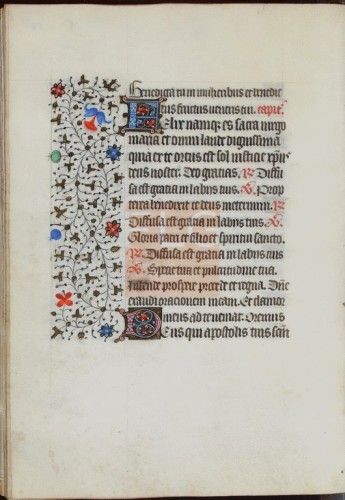 Benedicta tu in mulieribus et benedic
tus fructus ventris tui. capitł.
Felix namq; es sacra virgo
maria et omni laude dignissima
quia ex te ortus est sol iusticie xp̄us
deus noster. Deo gratias. ℟. Diffu
sa est gratia in labijs tuis. ℣. Prop
terea benedixit te deus in eternum. ℟.
Diffusa est gratia in labijs tuis. ℣.
Gloria patri et filio et spiritui sancto.
℟. Diffusa est gratia in labijs tuis
℣. Specie tua et pulcritudine tua.
Intende prospere procede et regna. Dn̄e
exaudi orationem meam. Et clamor
meus ad te veniat. Oremus
Deus qui apostolis tuis san